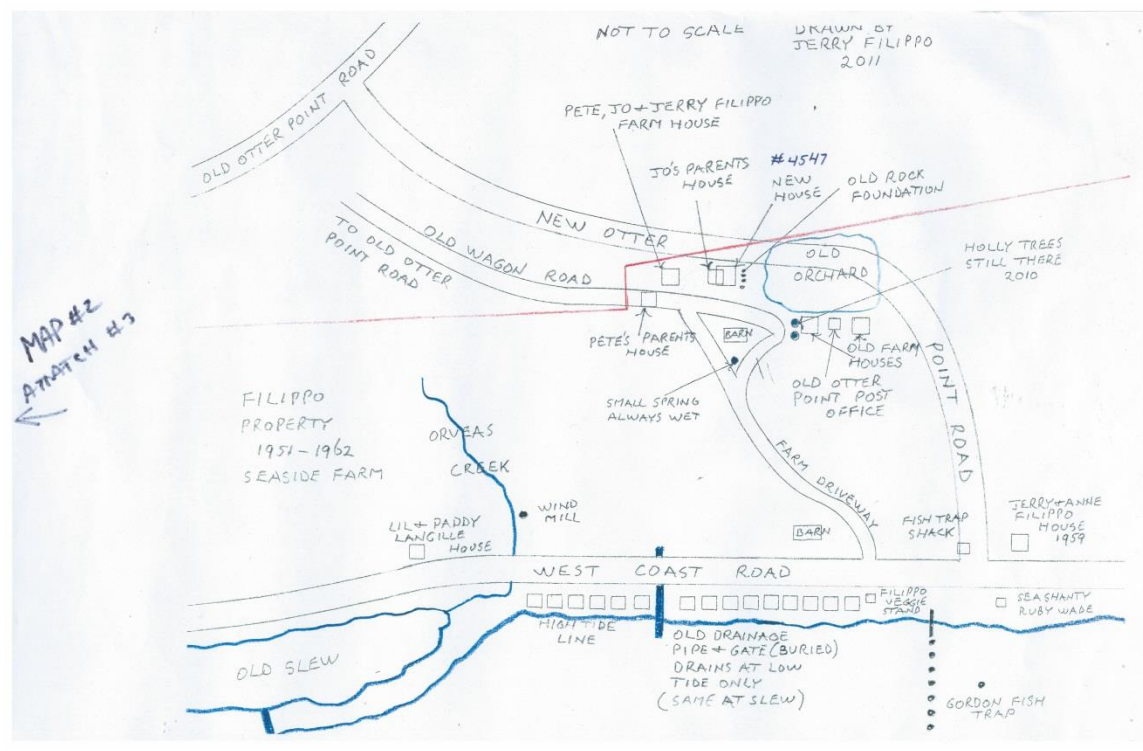 NOT TO SCALE
DRAWN BY
JERRY FILIPPO
2011
OLD OTTER POINT ROAD
PETE, JO & JERRY FILIPPO
FARM HOUSE
JO'S PARENTS
HOUSE
#4547
NEW
HOUSE
OLD ROCK
FOUNDATION
NEW OTTER
POINT ROAD
OLD WAGON ROAD
TO OLD OTTER
POINT ROAD
OLD
ORCHARD
HOLLY TREES
STILL THERE
2010
MAP #2
ATTATCH #3
PETE'S PARENTS
HOUSE
BARN
OLD FARM
HOUSES
OLD OTTER
POINT POST
OFFICE
SMALL SPRING
ALWAYS WET
FILIPPO
PROPERTY
1951-1962
SEASIDE FARM
ORVEAS
CREEK
FARM DRIVEWAY
WIND
MILL
LIL & PADDY
LANGILLE
HOUSE
BARN
FISH TRAP
SHACK
JERRY & ANNE
FILIPPO
HOUSE
1959
WEST COAST ROAD
FILIPPO
VEGGIE
STAND
SEASHANTY
RUBY WADE
HIGH TIDE
LINE
OLD DRAINAGE
PIPE & GATE (BURIED)
DRAINS AT LOW
TIDE ONLY
(SAME AT SLEW)
OLD SLEW
GORDON FISH
TRAP